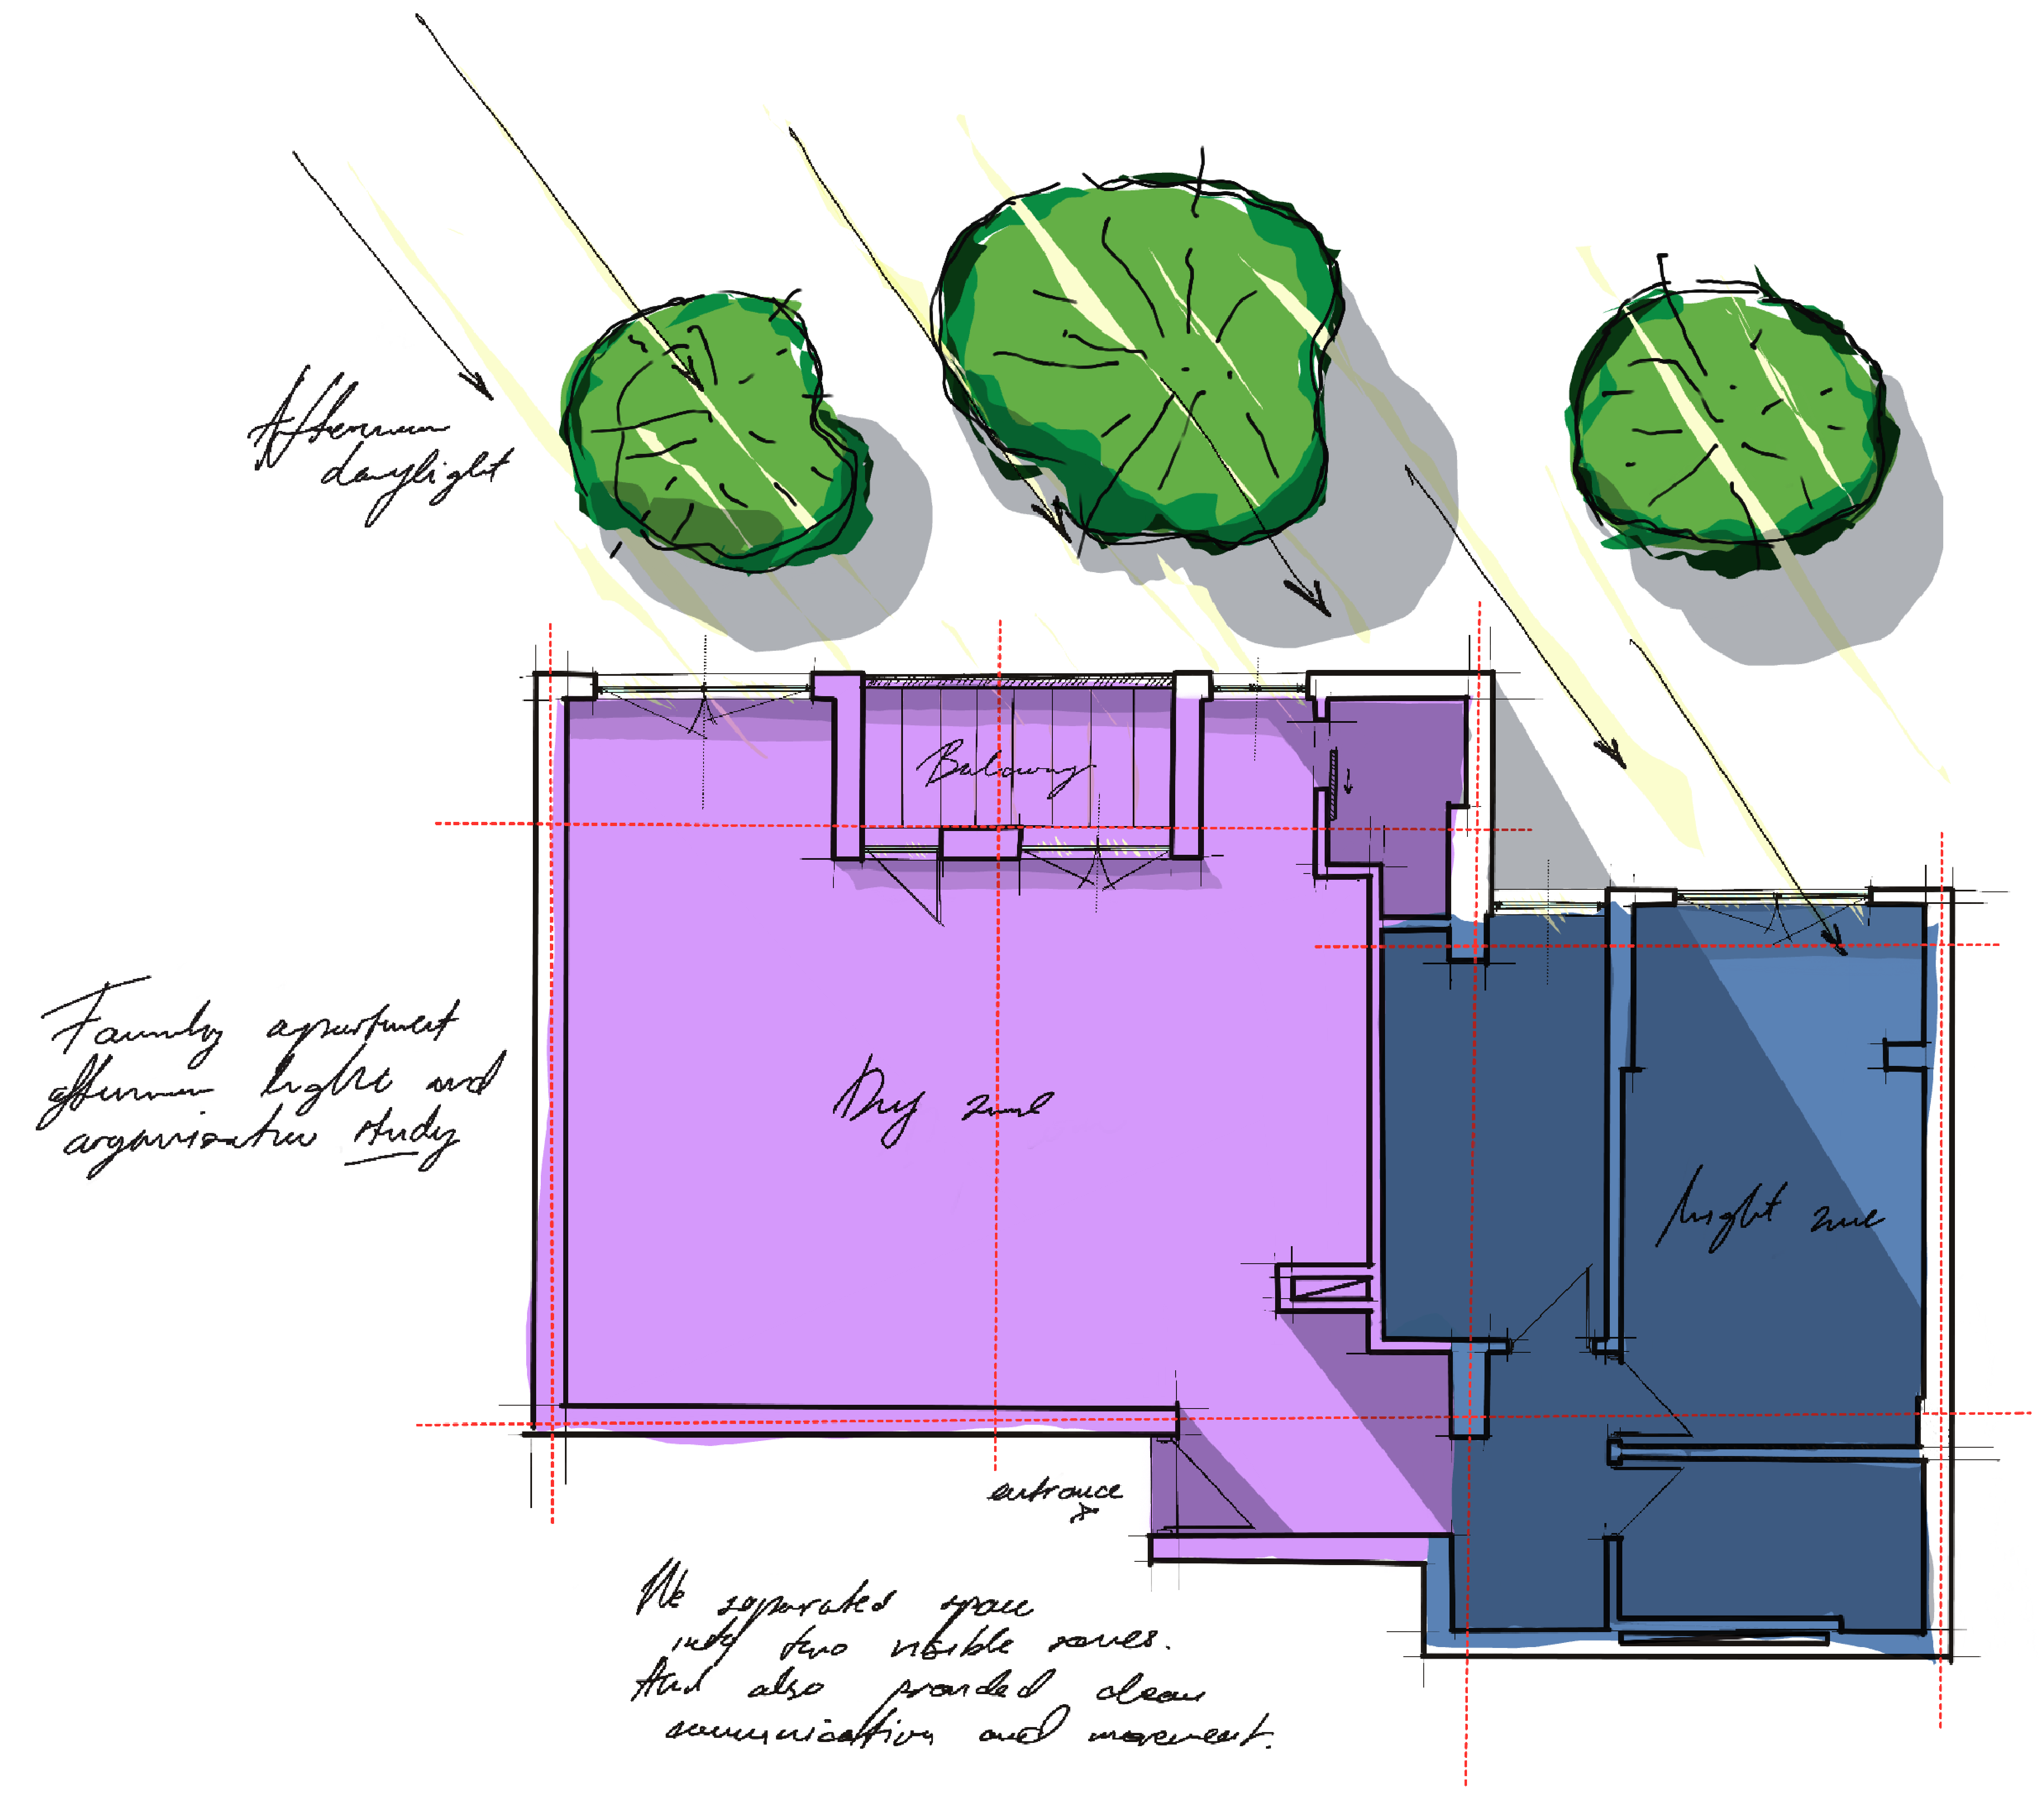 Afternoon
daylight
Balcony
Family apartment
afternoon light and
organisation study
Day zone
Night zone
entrance
We separated space
into two visible zones.
And also provided clean
communication and movement.